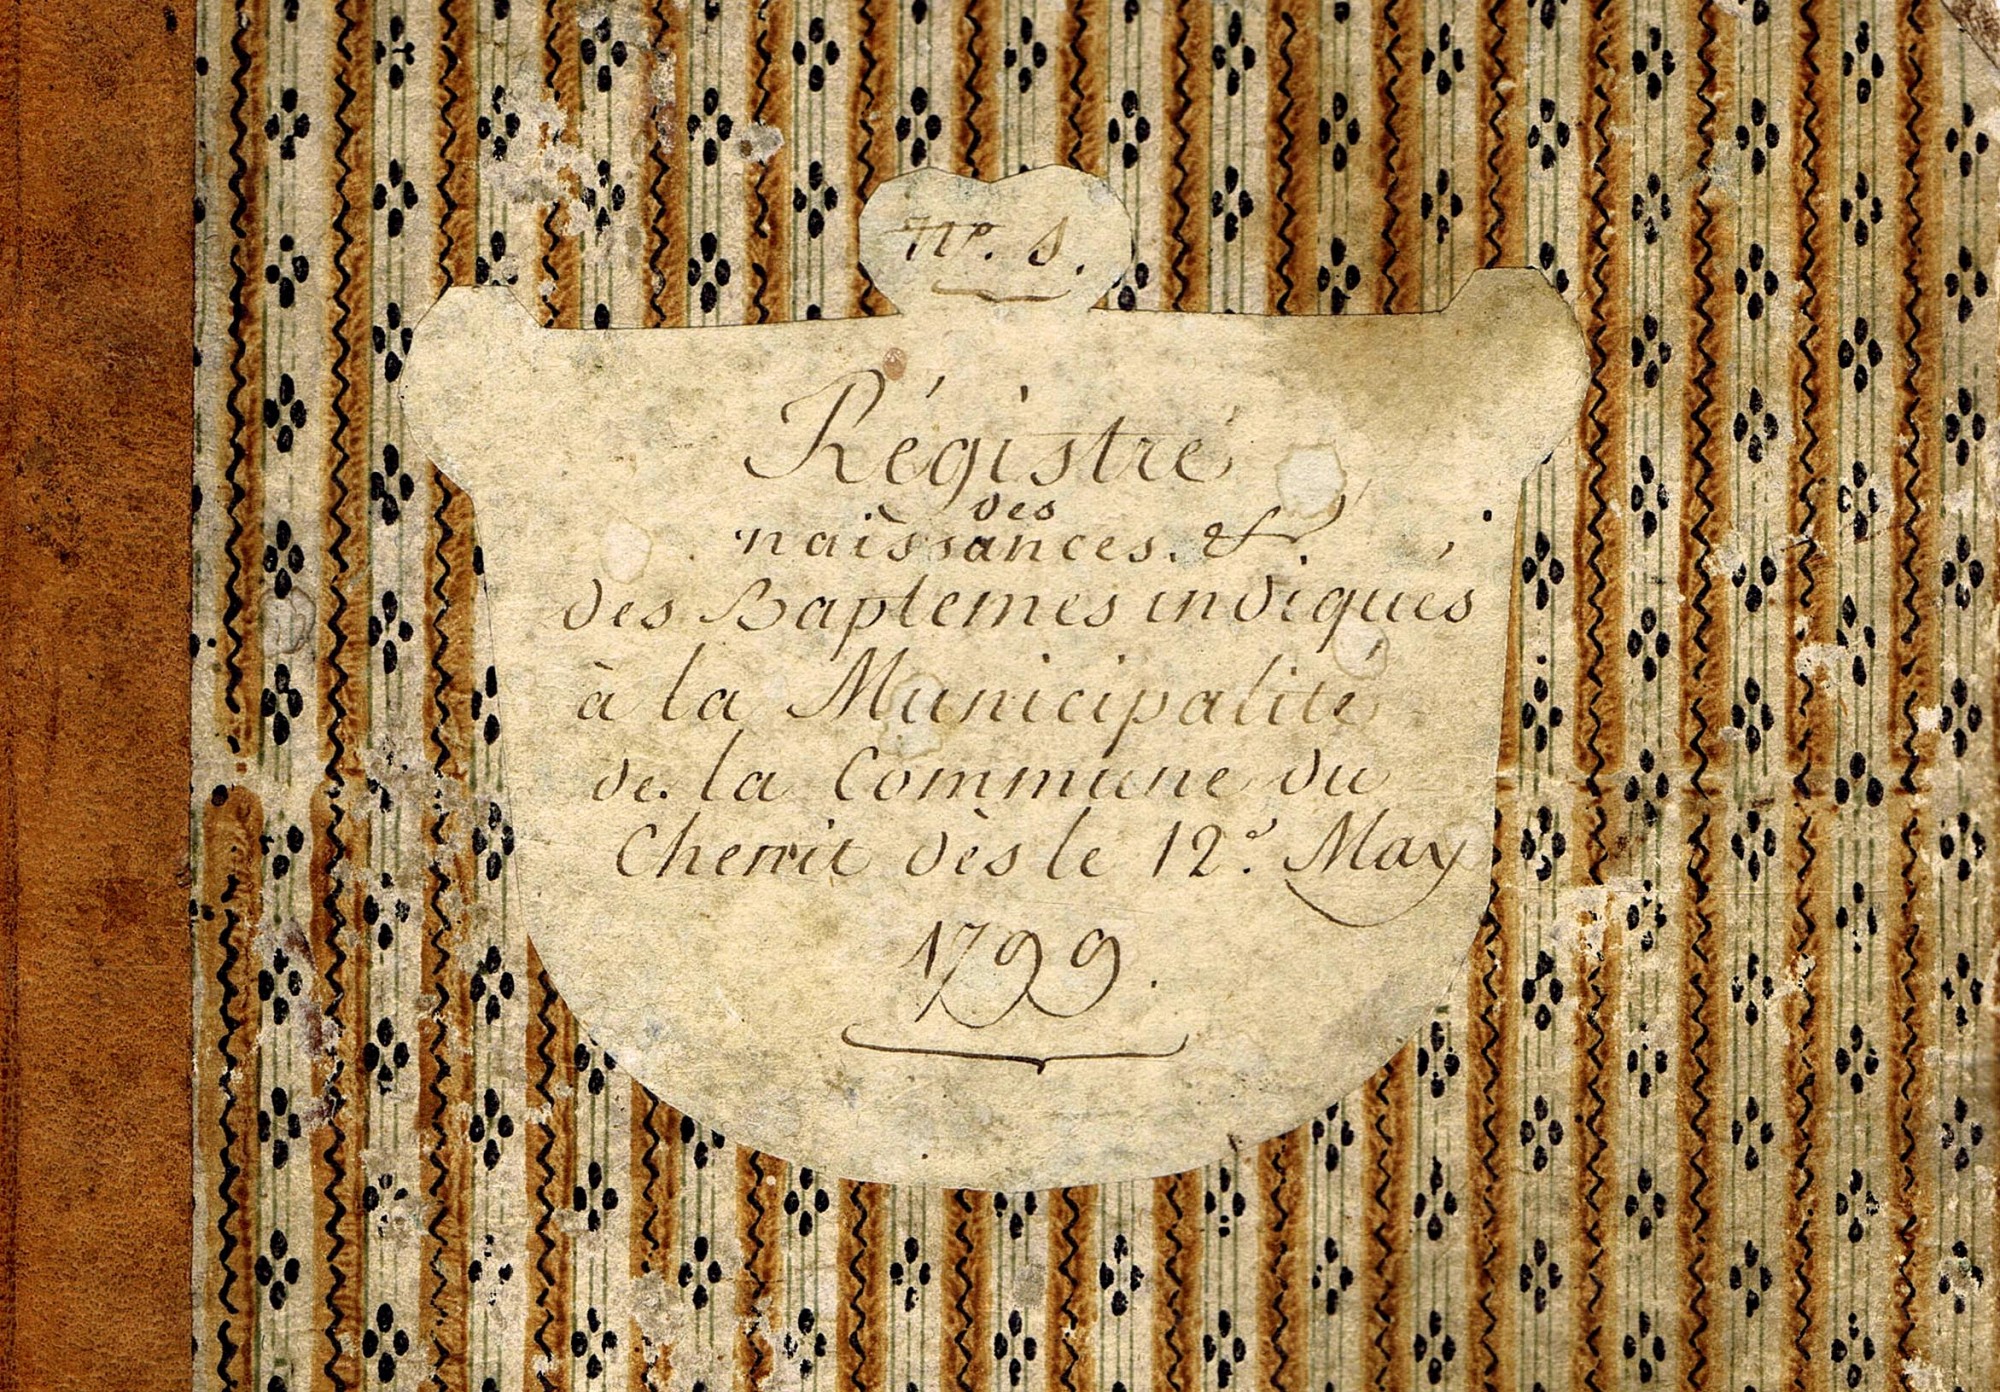 Nº. 1.
Régistré
des
naissances. &.
des Baptemes indiqués
à la Municipalité
de la Commune du
Chennit dès le 12.e May
1799.